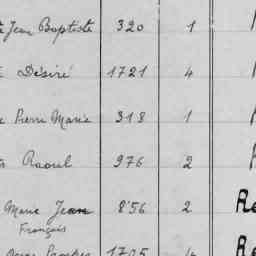 Jean Baptiste 320 1
Désiré 1721 4
Pierre Marie 318 1
Raoul 976 2
Marie Jean 856 2 Re
Français
1705